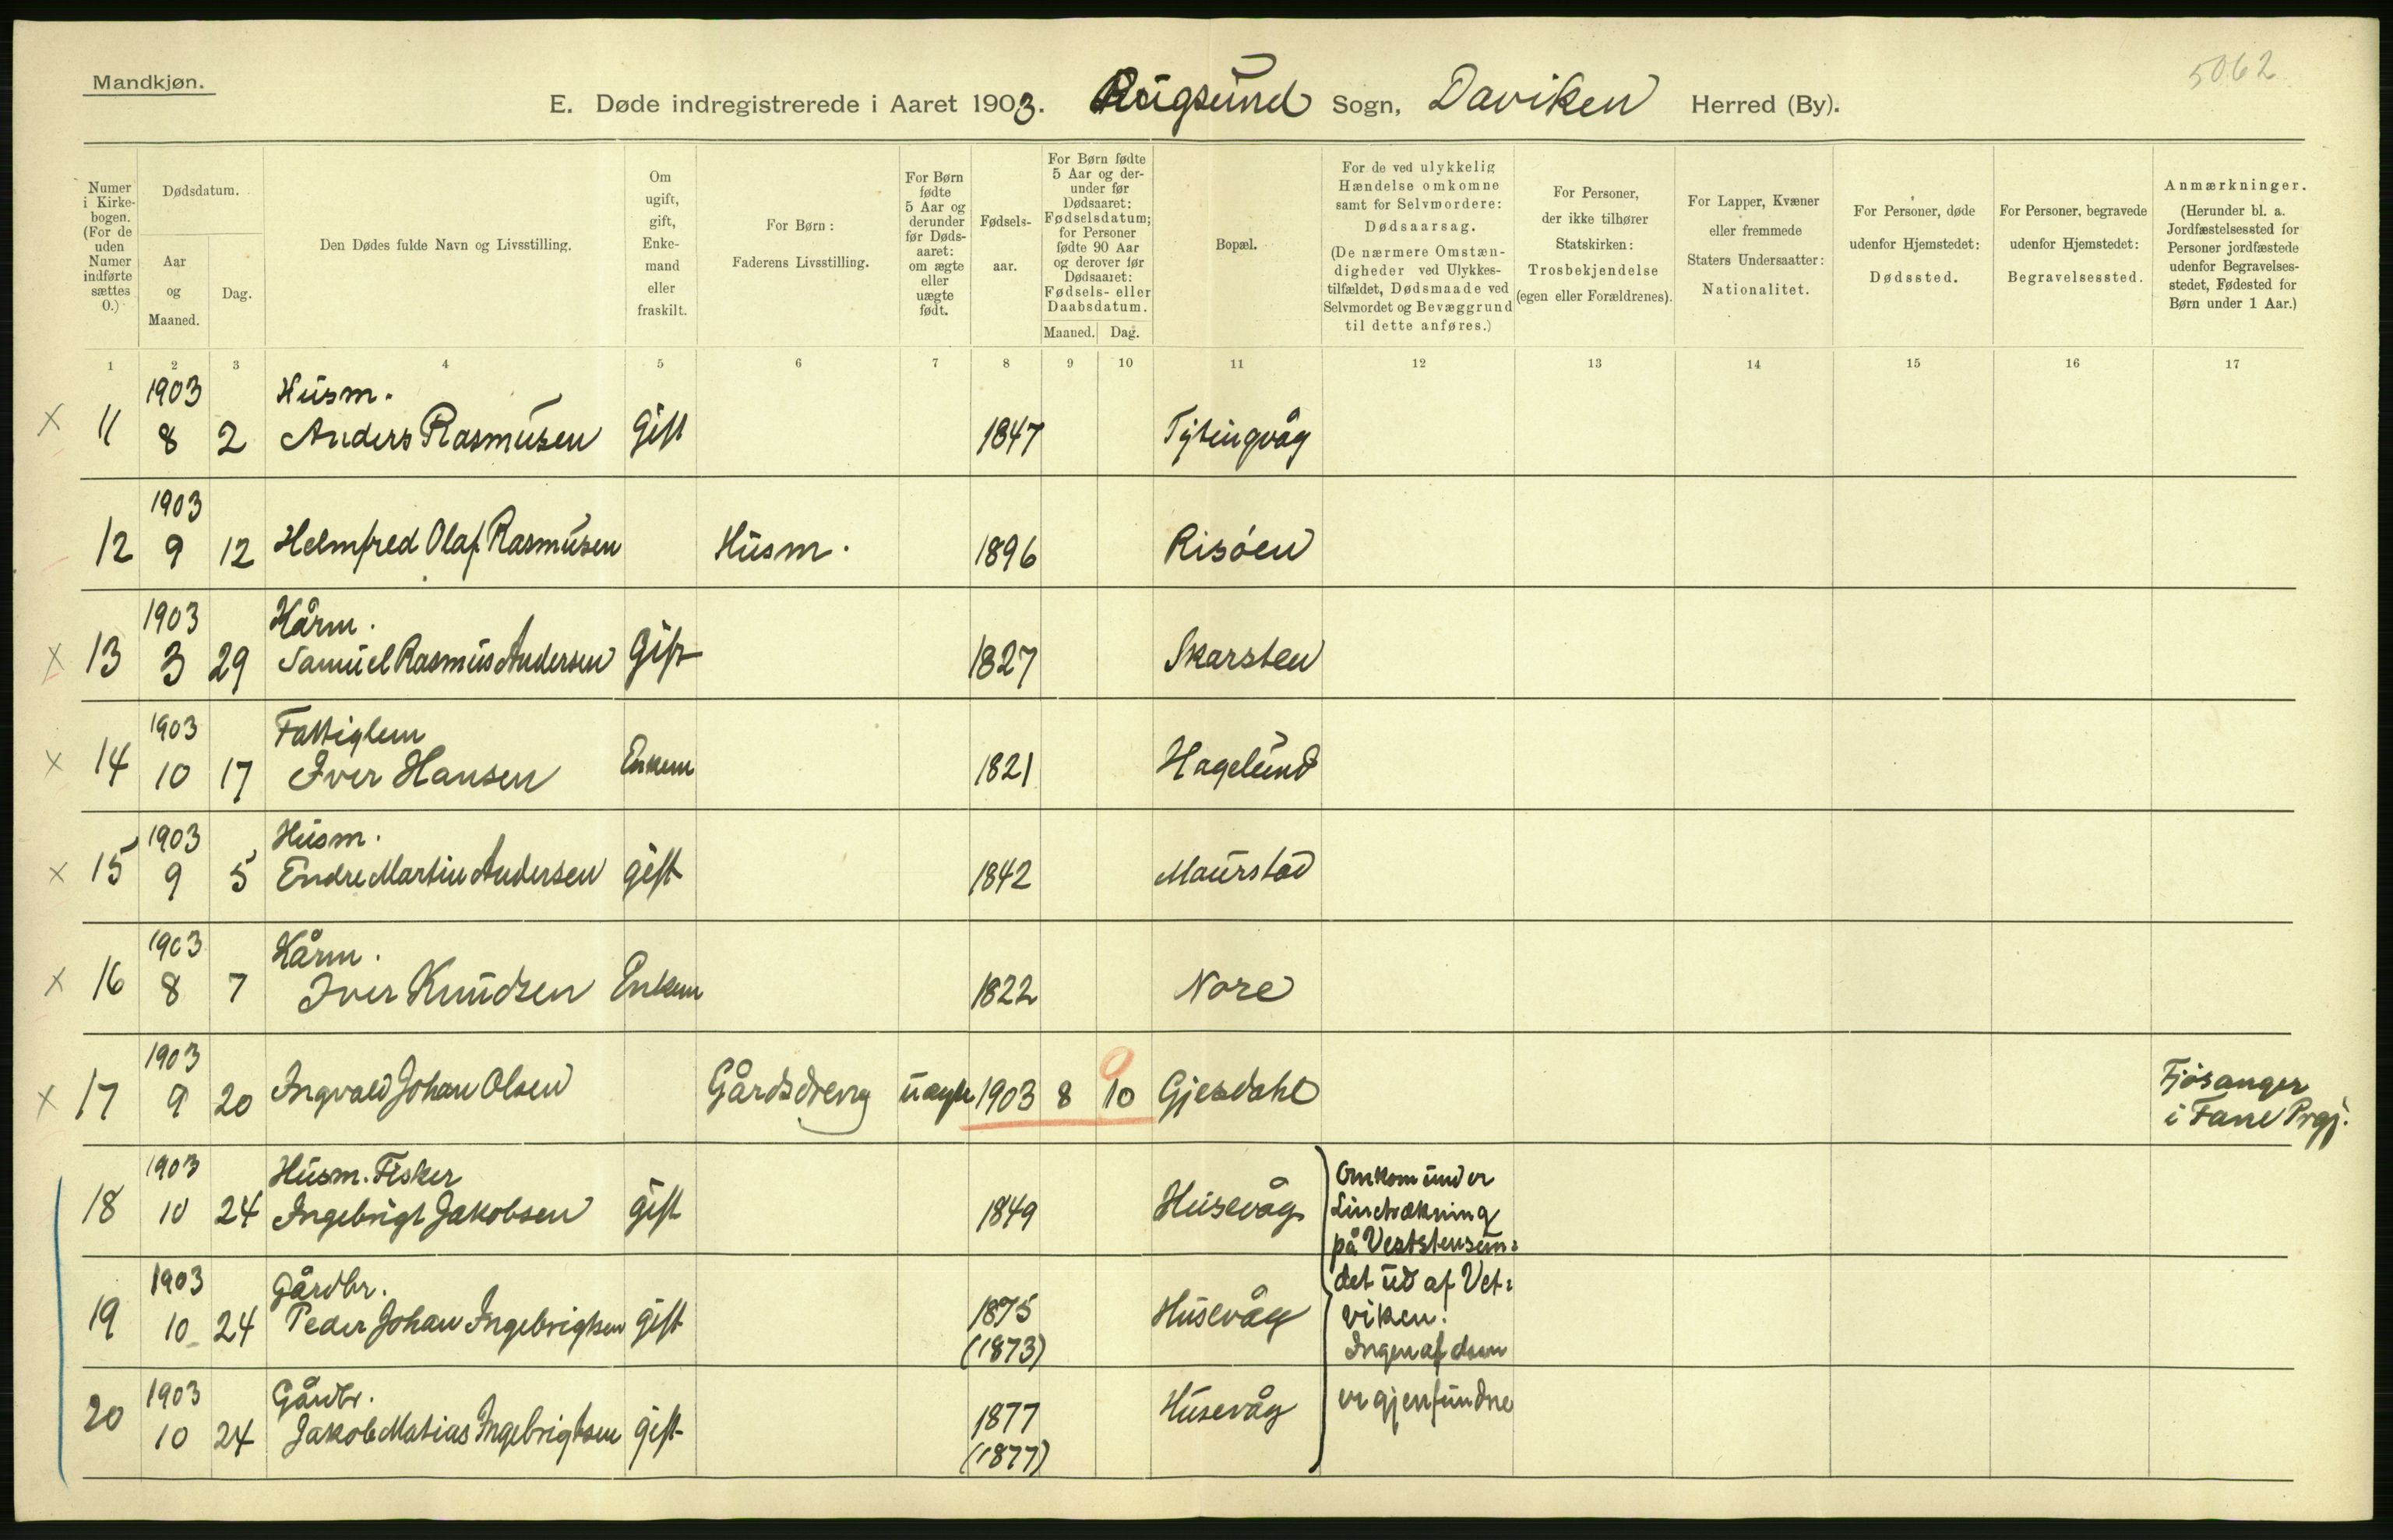 5062
Mandkjøn.
E. Døde indregistrerede i Aaret 1903. Rugsund Sogn, Daviken Herred (By).
Numer i Kirke-bogen. (For de uden Numer indførte sættes 0.)
Dødsdatum.
Aar og Maaned.
Dag.
Den Dødes fulde Navn og Livsstilling.
Om ugift, gift, Enke-mand eller fraskilt.
For Børn: Faderens Livsstilling.
For Børn fødte 5 Aar og derunder før Døds-aaret: om ægte eller uægte født.
Fødsels-aar.
For Børn fødte 5 Aar og der-under før Dødsaaret: Fødselsdatum; for Personer fødte 90 Aar og derover før Dødsaaret: Fødsels- eller Daabsdatum.
Maaned. Dag.
Bopæl.
For de ved ulykkelig Hændelse omkomne samt for Selvmordere: Dødsaarsag. (De nærmere Omstæn-digheder ved Ulykkes-tilfældet, Dødsmaade ved Selvmordet og Bevæggrund til dette anføres.)
For Personer, der ikke tilhører Statskirken: Trosbekjendelse (egen eller Forældrenes).
For Lapper, Kvæner eller fremmede Staters Undersaatter: Nationalitet.
For Personer, døde udenfor Hjemstedet: Dødssted.
For Personer, begravede udenfor Hjemstedet: Begravelsessted.
Anmærkninger. (Herunder bl. a. Jordfæstelsessted for Personer jordfæstede udenfor Begravelses-stedet, Fødested for Børn under 1 Aar.)
1 2 3 4 5 6 7 8 9 10 11 12 13 14 15 16 17
1903 Husm.
x 11 8 2 Anders Rasmusen Gift 1847 Tytingvåg
1903
12 9 12 Helmfred Olaf Rasmusen Husm. 1896 Risöen
1903 Kårm.
x 13 3 29 Samuel Rasmus Andersen Gift 1827 Skarsten
1903 Fattiglem
x 14 10 17 Iver Hansen Enkem 1821 Hagelund
1903 Husm.
x 15 9 5 Endre Martin Andersen gift 1842 Maurstad
1903 Kårm.
x 16 8 7 Iver Knudsen Enkem 1822 Nore
1903
x 17 9 20 Ingvald Johan Olsen Gårdsdreng uægte 1903 8 10 Gjesdahl Fjösanger
i Fane Prgj.
1903 Husm. Fisker Omkom under
18 10 24 Ingebrigt Jakobsen gift 1849 Husevåg Linetrækning
på Veststensun=
1903 Gårdbr. det ud af Vet=
19 10 24 Peder Johan Ingebrigtsen gift 1875 Husevåg viken.
(1873) Ingen af dem
1903 Gårdbr. er gjenfundne
20 10 24 Jakob Matias Ingebrigtsen gift 1877 Husevåg
(1877)